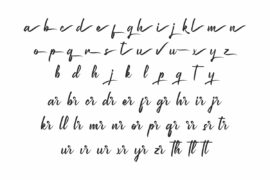 a b c d e f g h i j k l m n
o p q r s t u v w x y z
b d h j k l p q t y
ar br cr dr er fr gr hr ir jr
kr ll lr mr nr or pr qr rr sr tr
ur vr wr xr yr zr th tl tt